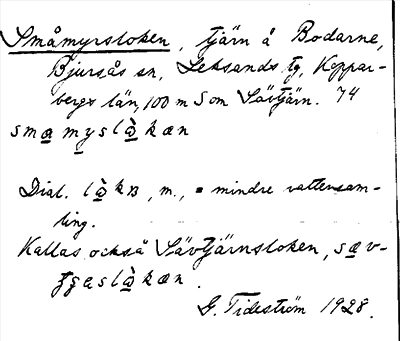 Småmyrsloken, tjärn å Bodarne,
Bjursås sn, Leksands tg, Koppar-
bergs län, 100 m S om Sävtjärn. 74
smamyslàkæn
Dial. làkn, m., = mindre vattensam-
ling.
Kallas också Sävtjärnsloken, sæv-
slàkæn.
G. Tideström 1928.